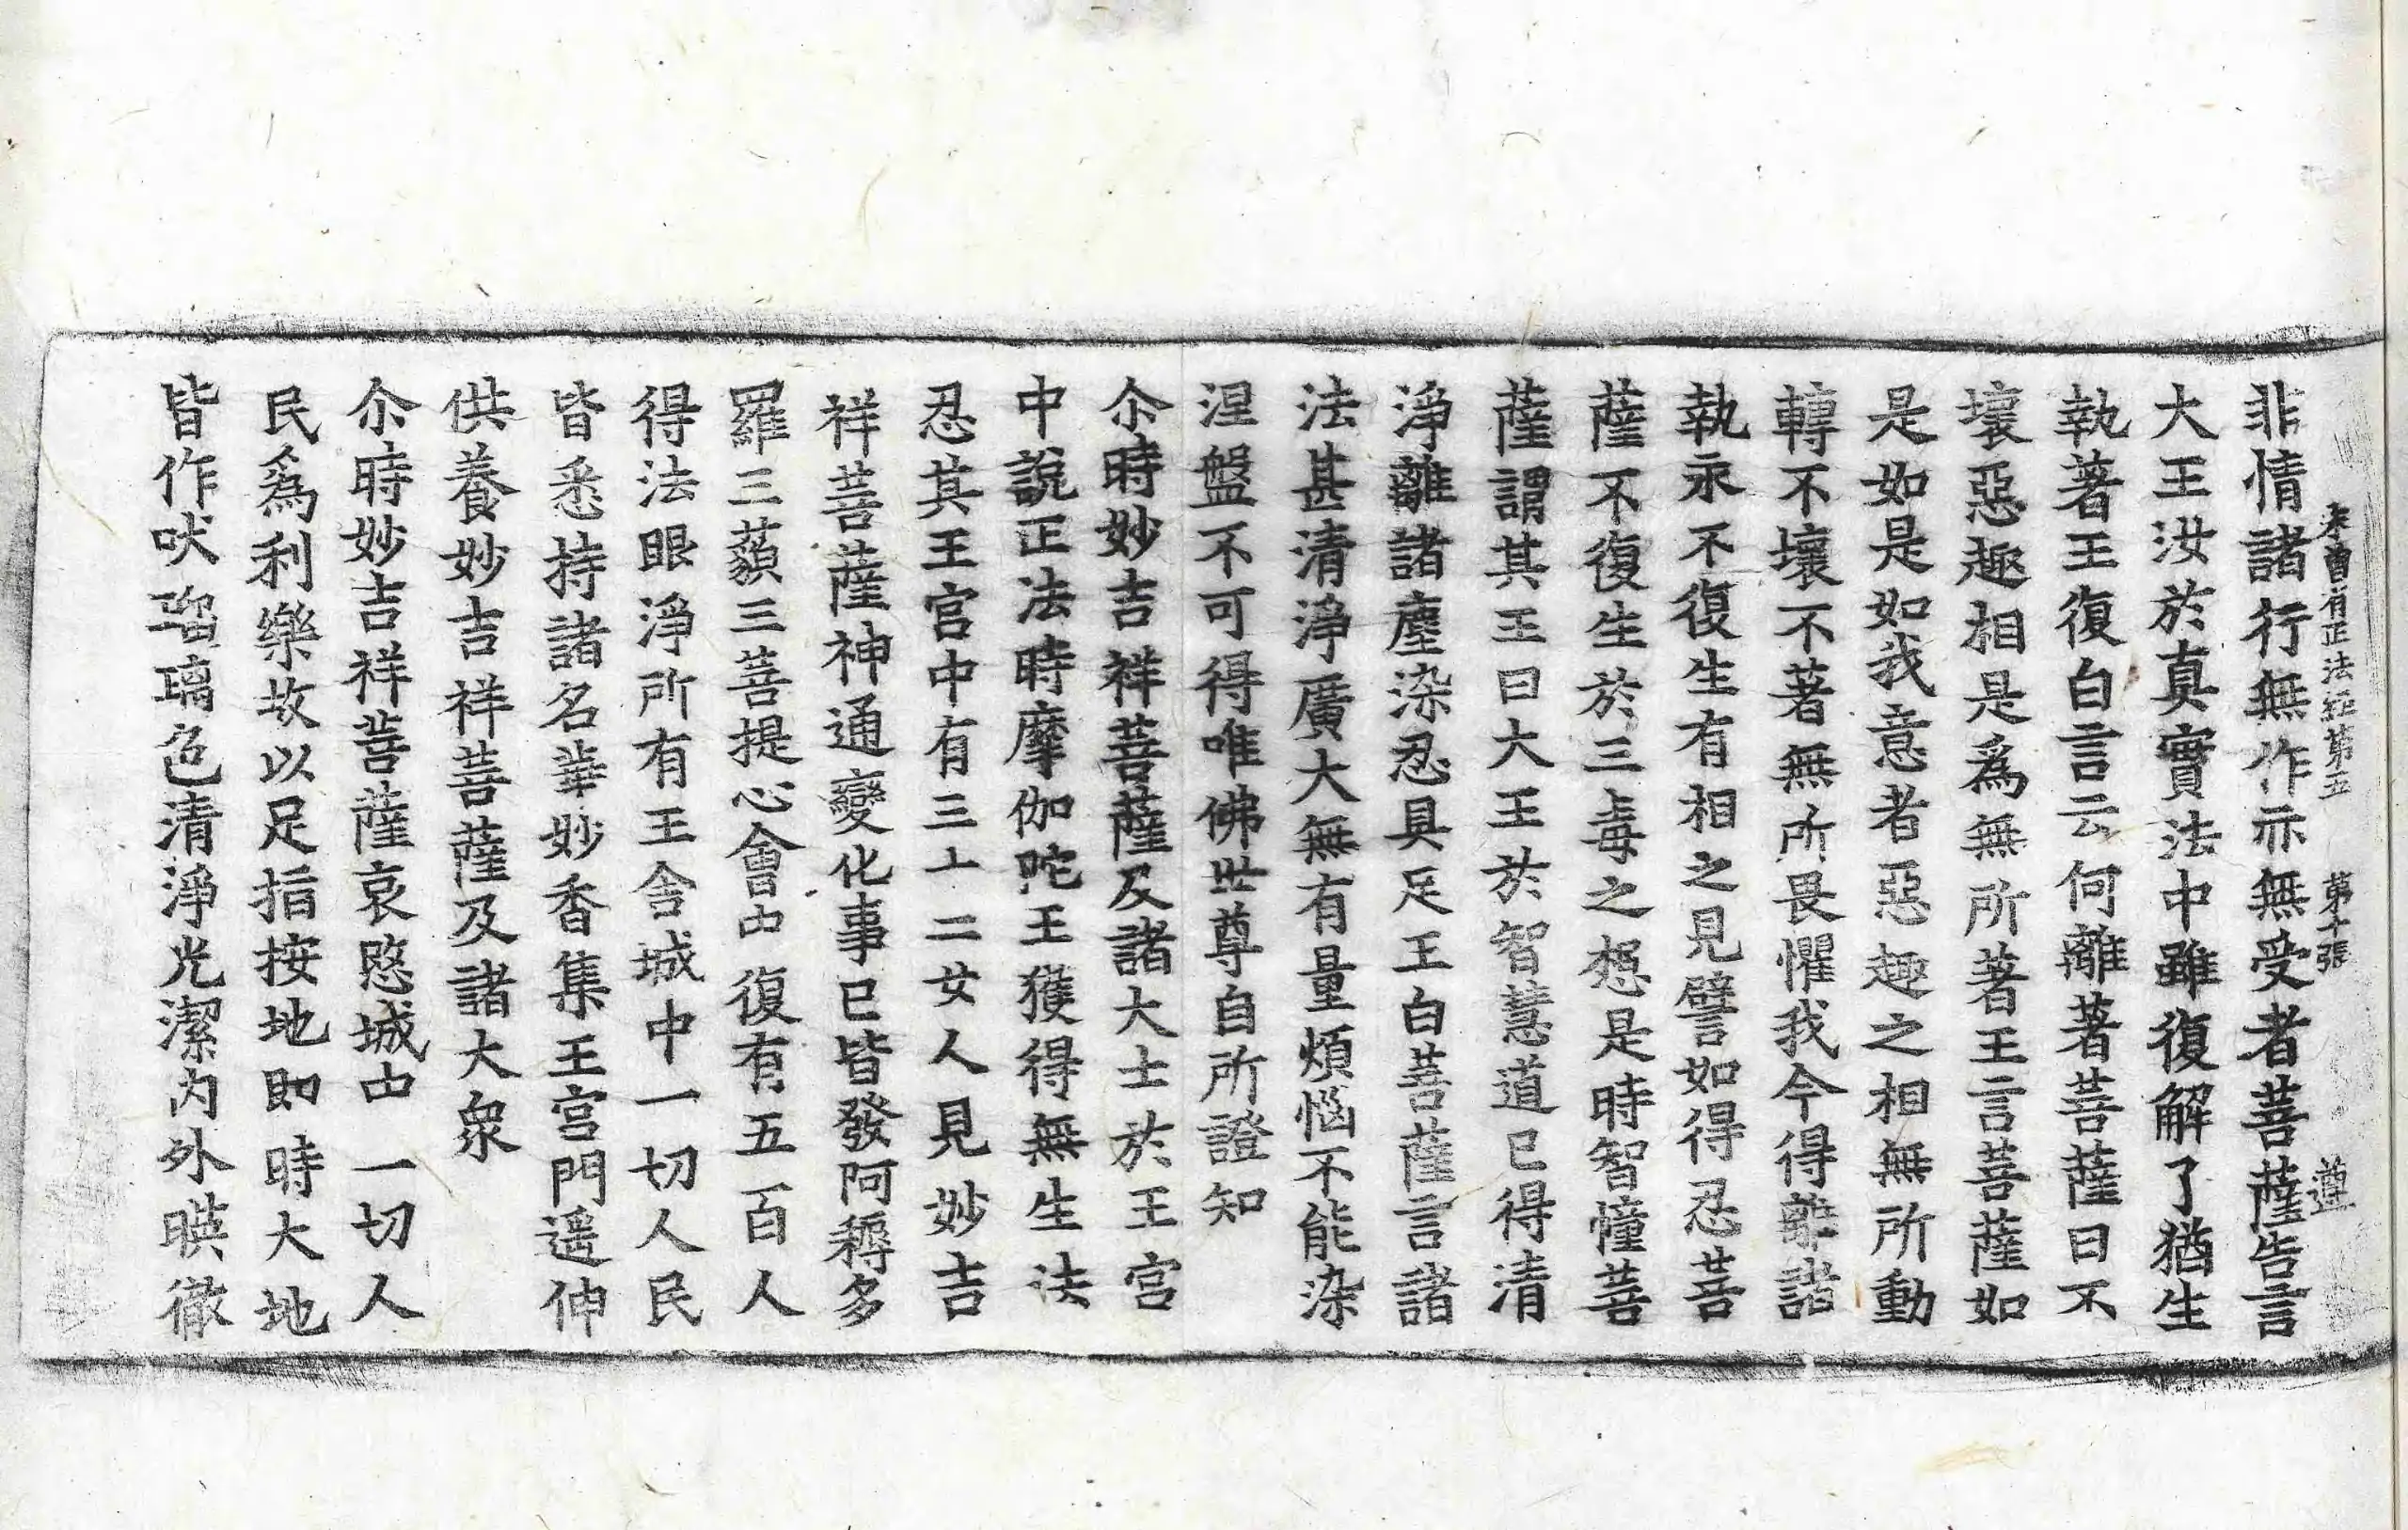 未曾有正法經第五 第十張 遵
非情諸行無作亦無受者菩薩告言
大王汝於真實法中雖復解了猶生
執著王復白言云何離著菩薩曰不
壞惡趣相是爲無所著王言菩薩如
是如是如我意者惡趣之相無所動
轉不壞不著無所畏懼我今得離諸
執永不復生有相之見譬如得忍菩
薩不復生於三毒之想是時智幢菩
薩謂其王曰大王於智慧道已得清
淨離諸塵染忍具足王白菩薩言諸
法甚清淨廣大無有量煩惱不能染
涅盤不可得唯佛世尊自所證知
尒時妙吉祥菩薩及諸大士於王宮
中說正法時摩伽陀王獲得無生法
忍其王宮中有三十二女人見妙吉
祥菩薩神通變化事已皆發阿耨多
羅三藐三菩提心會中復有五百人
得法眼淨所有王舍城中一切人民
皆悉持諸名華妙香集王宮門遥伸
供養妙吉祥菩薩及諸大衆
尒時妙吉祥菩薩哀愍城中一切人
民爲利樂故以足指按地即時大地
皆作吠瑠璃色清淨光潔内外暎徹